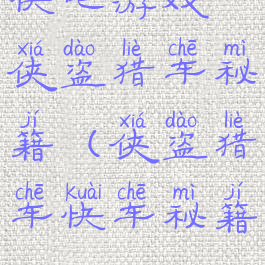 侠
xiá dào liè chē mì
侠盗猎车秘
jí xiá dào liè
籍(侠盗猎
chē kuài chē mì jí
车快车秘籍